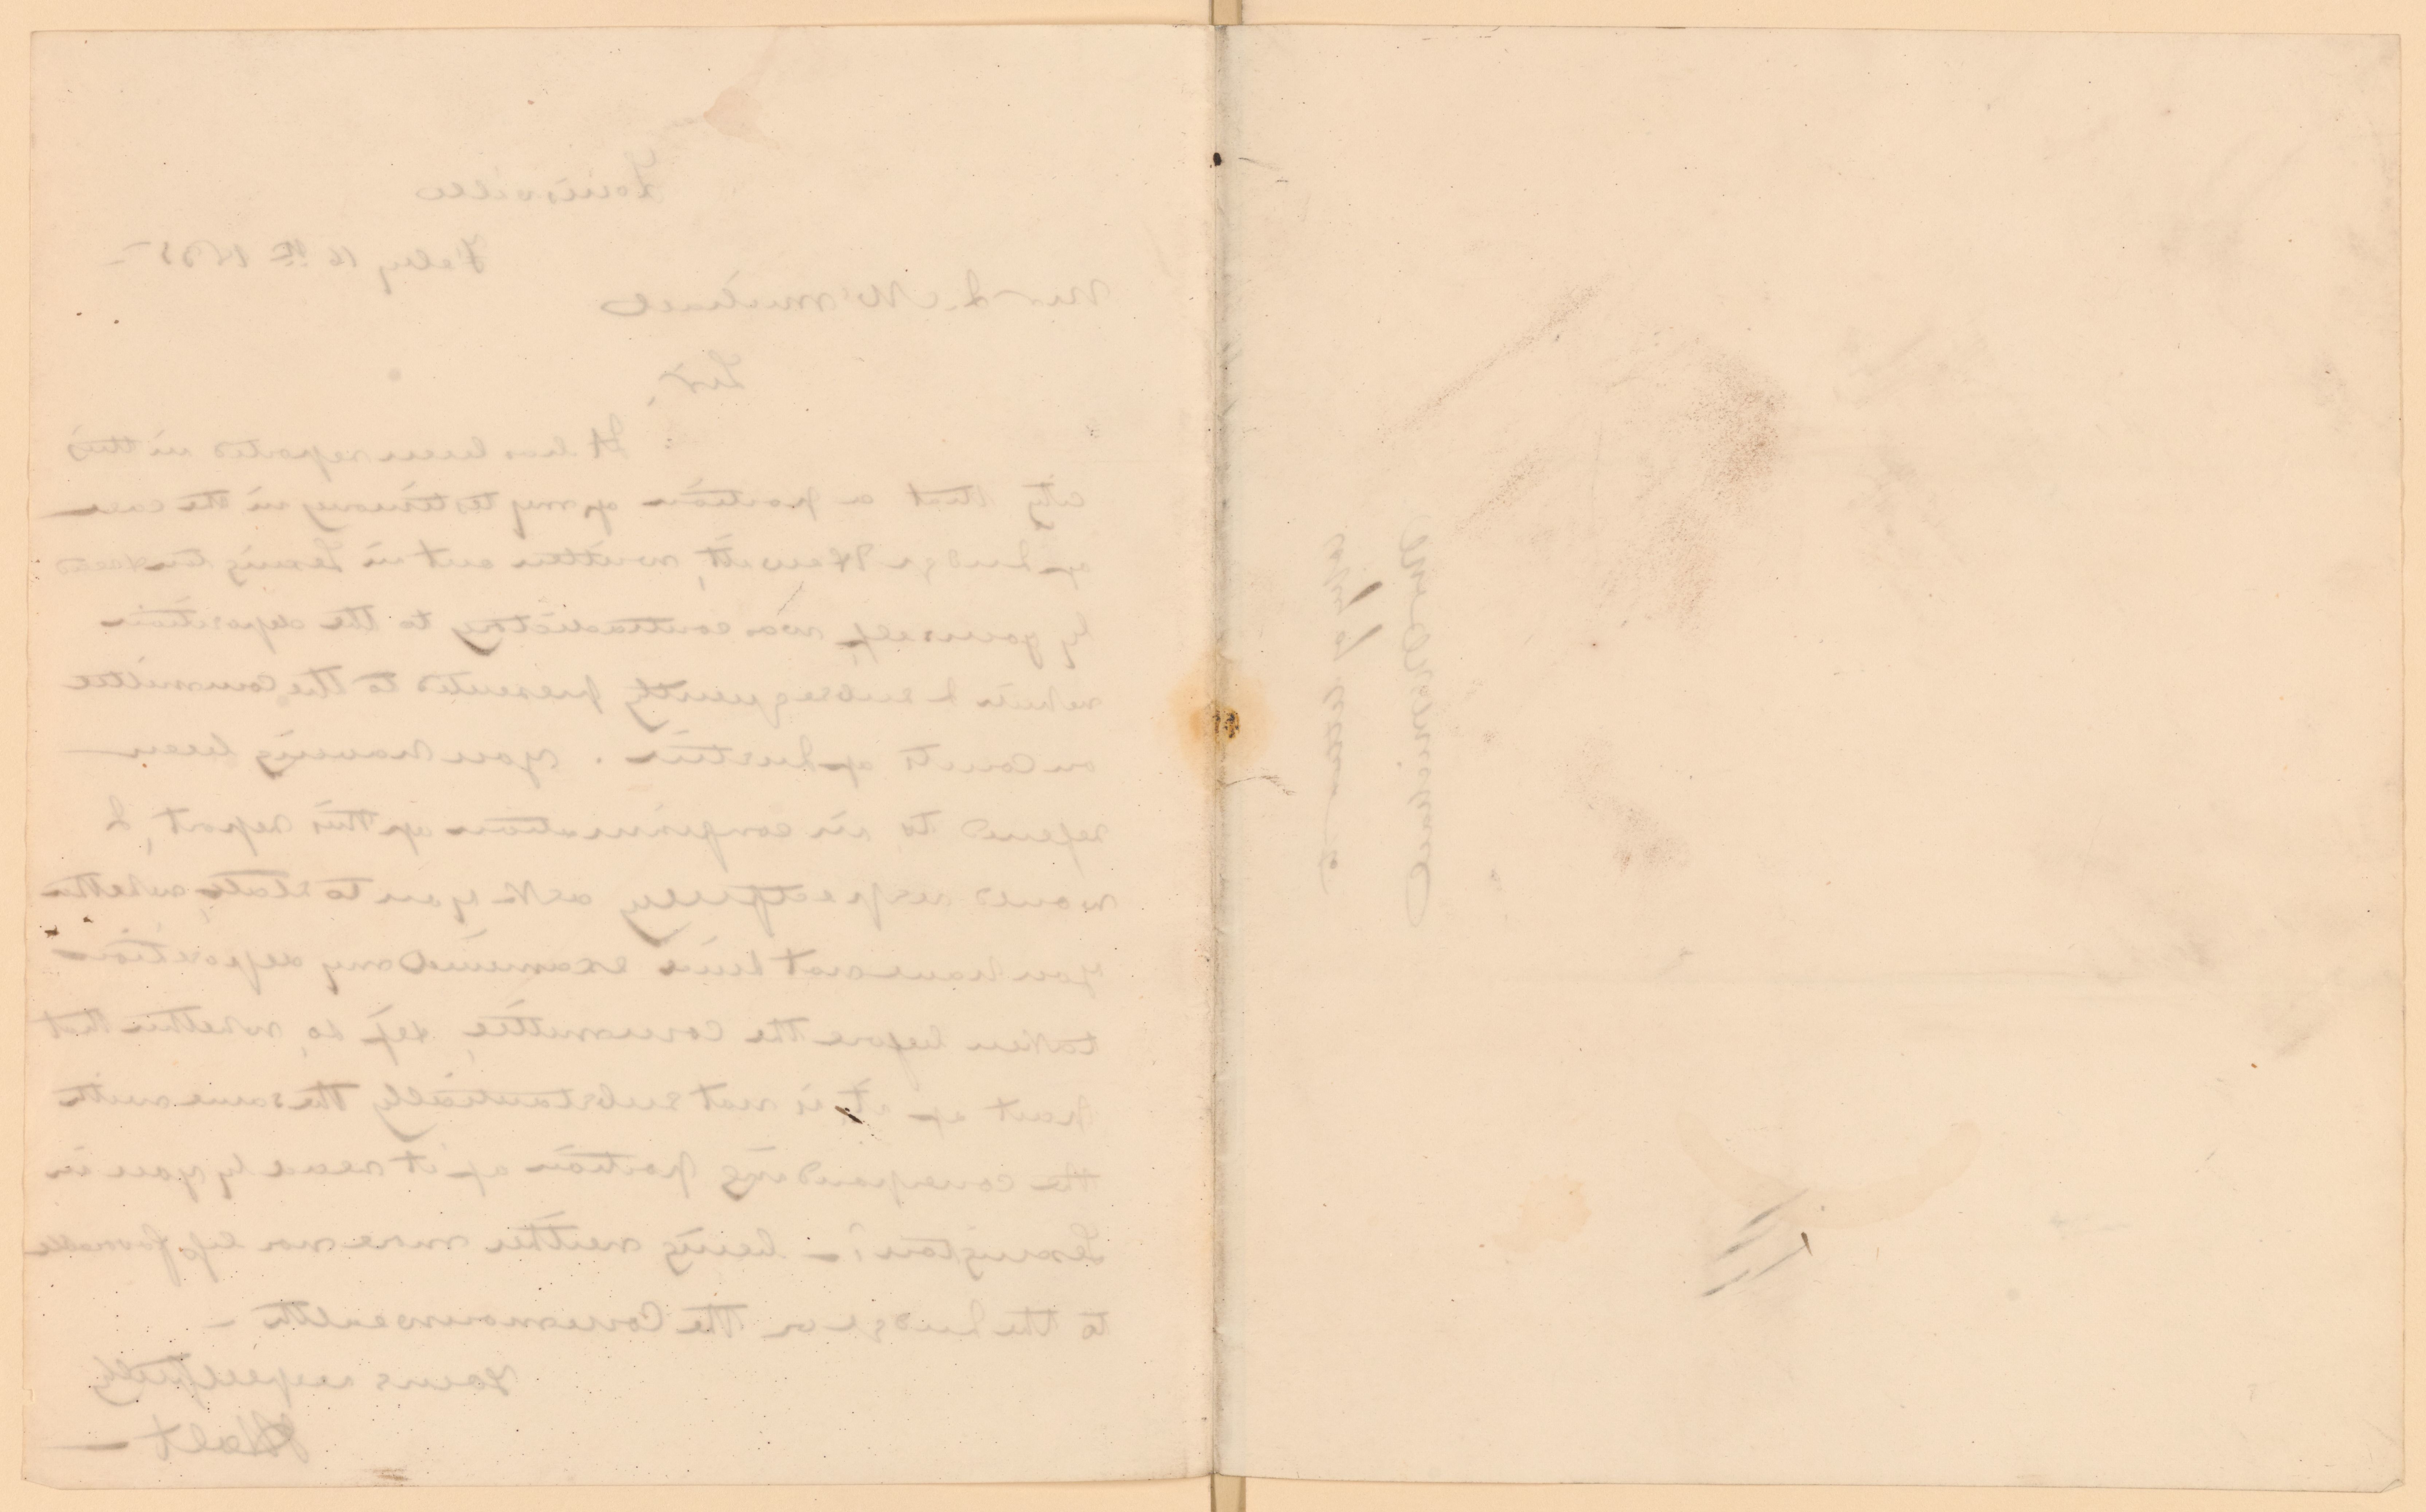 Louisville
Feby 16th 1835
Mr. McMurtrie
Sir,
It has been reported in this
city that a portion of my testimony in the case
of Judge Hewitt, written out in Lexington
by yourself, was contradictory to the deposition
which I subsequently presented to the Committee
on Courts of Justice. You having been
refered to in confirmation of this report, I
would respectfully ask you to state, whether
you have not since examined my deposition
taken before the Committee, & if so, whether that
part of it is not substantially the same with
the corresponding portion of it read by you in
Lexington? – being neither more nor less favorable
to the Judge or the Commonwealth –
Yours respectfully
J Holt –